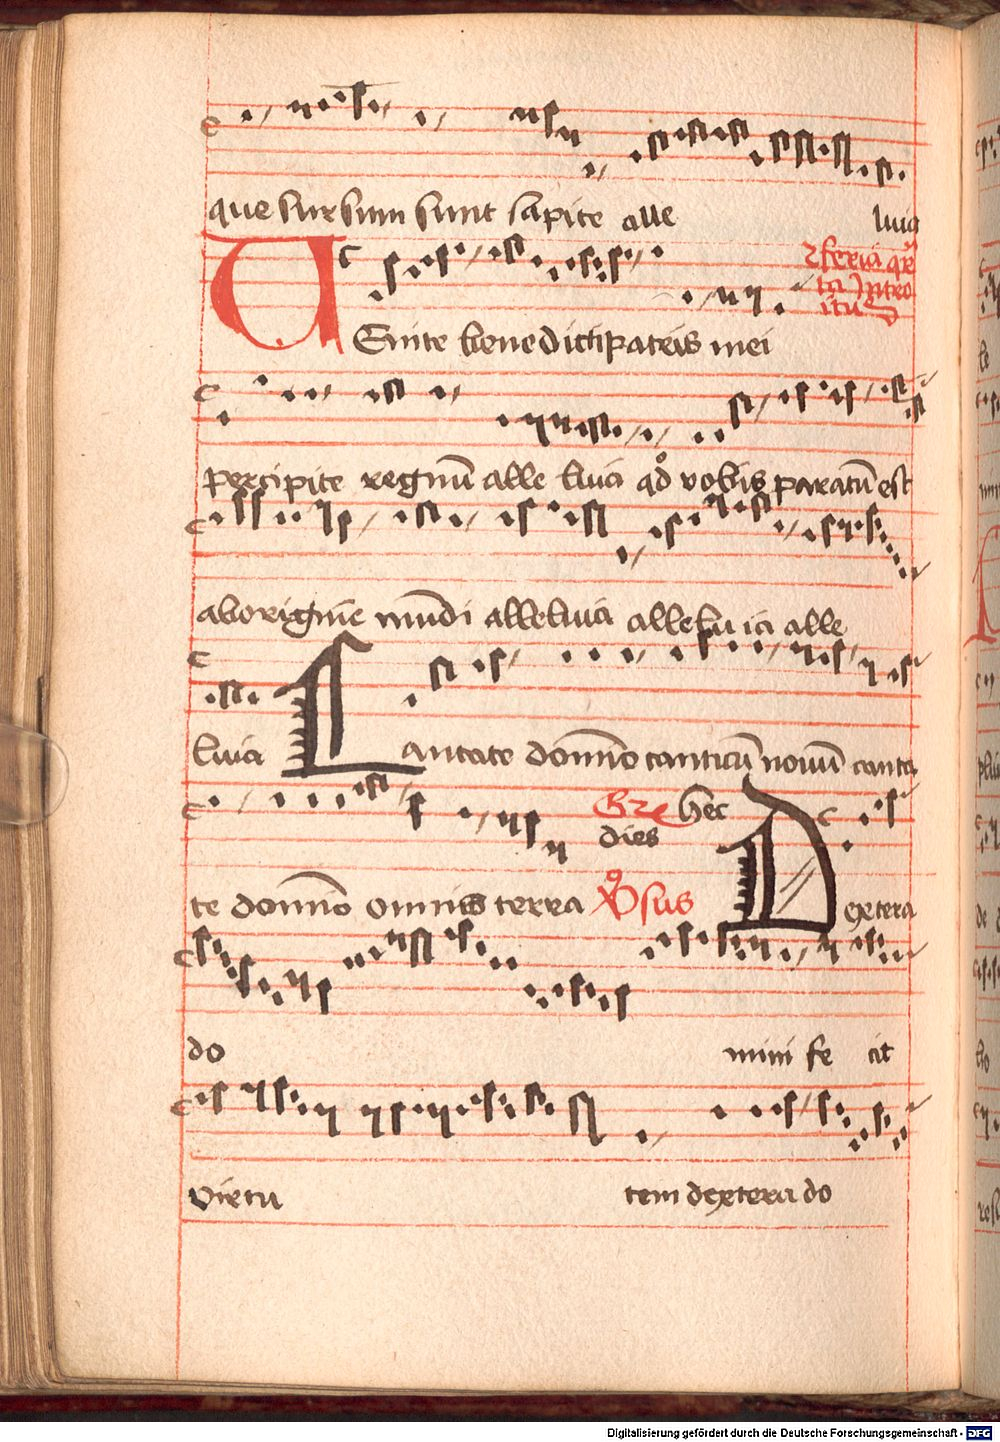 que sursum sunt sapite alle luia
feria qr
ta Intro
itus
VEnite benedicti patris mei
percipite regnū alle luia qd vobis paratū est
ab origine mūdi alleluia allelu ia alle
luia Cantate domīo canticū novū canta
Gre hec
dies
te domīo omnis terra Vsus Dextera
do mini fe cit
virtu tem dextera do
Digitalisierung gefördert durch die Deutsche Forschungsgemeinschaft - DFG